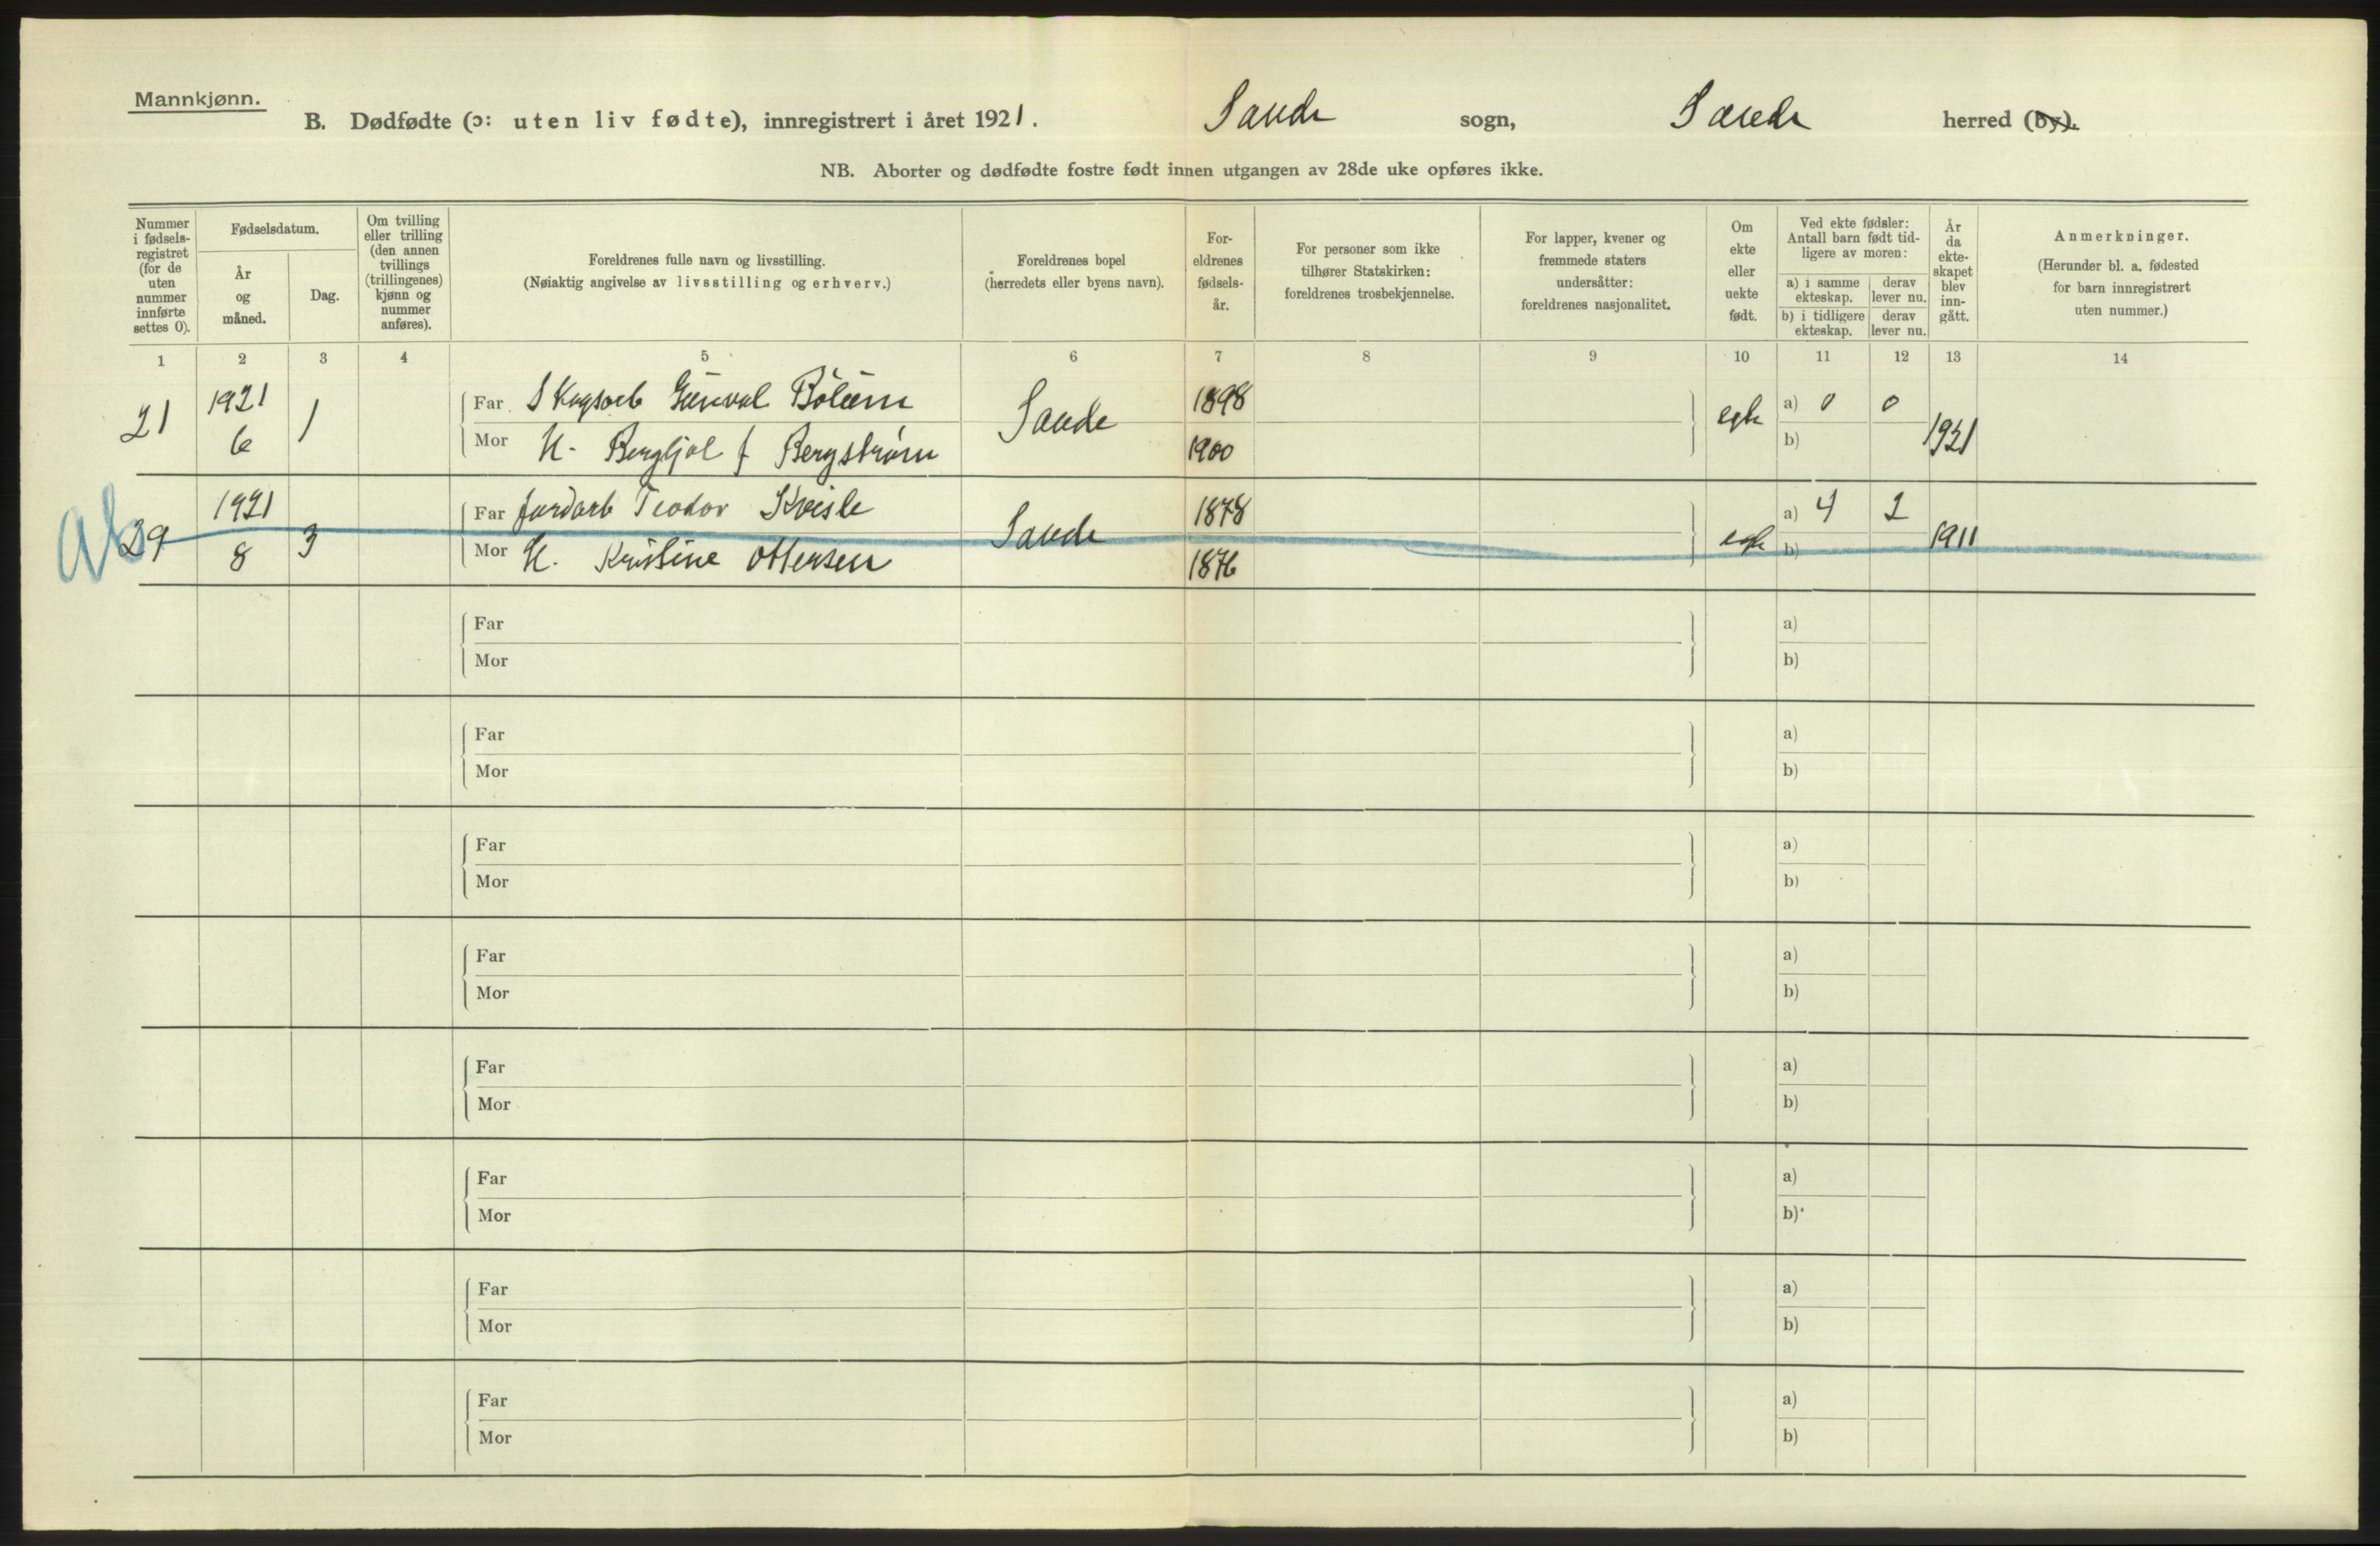 Mannkjønn.
B. Dødfødte (ɔ: uten liv fødte), innregistrert i året 1921. Saude sogn, Saude herred (by).
NB. Aborter og dødfødte fostre født innen utgangen av 28de uke opføres ikke.
Nummer i fødsels-registret (for de uten nummer innførte settes 0).
Fødselsdatum.
År og måned.
Dag.
Om tvilling eller trilling (den annen tvillings (trillingenes) kjønn og nummer anføres).
Foreldrenes fulle navn og livsstilling.
(Nøiaktig angivelse av livsstilling og erhverv.)
Foreldrenes bopel
(herredets eller byens navn).
For-eldrenes fødsels-år.
For personer som ikke tilhører Statskirken: foreldrenes trosbekjennelse.
For lapper, kvener og fremmede staters undersåtter: foreldrenes nasjonalitet.
Om ekte eller uekte født.
Ved ekte fødsler: Antall barn født tid-ligere av moren:
a) i samme ekteskap. derav lever nu.
b) i tidligere ekteskap. derav lever nu.
År da ekte-skapet blev inn-gått.
Anmerkninger.
(Herunder bl. a. fødested for barn innregistrert uten nummer.)
1 2 3 4 5 6 7 8 9 10 11 12 13 14
21 1921 6 1 Far Skogsarb Gunval 1898 a) 0 0
Mor H. Bergljot f Bergstrøm Saude 1900 egte b) 1921
29 1921 8 3 Far Jordarb Teodor Kvisle 1878 a) 4 2
Mor H. Kristine Ottersen Saude 1876 egte b) 1911
Far a)
Mor b)
Far a)
Mor b)
Far a)
Mor b)
Far a)
Mor b)
Far a)
Mor b)
Far a)
Mor b)
Far a)
Mor b)
Far a)
Mor b)